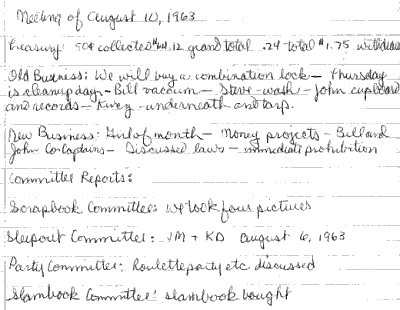 Meeting of August 10, 1963
Treasury: 50¢ collected $14.12 grand total .24 total $1.75 withdrawn
Old Business: We will buy a combination lock — Thursday
is cleanup day - Bill vaccum - Steve - wash - John cupboard
and records - Kweg - underneath and tarp.
New Business: Girl of month — Money projects - Bill and
John Co-Captains - Discussed laws - immediate prohibition
Committee Reports:
Scrapbook Committee: we took four pictures
Sleepout Committee: JM + KD August 6, 1963
Party Committee: Roulette party etc discussed
Slambook Committee: slambook bought